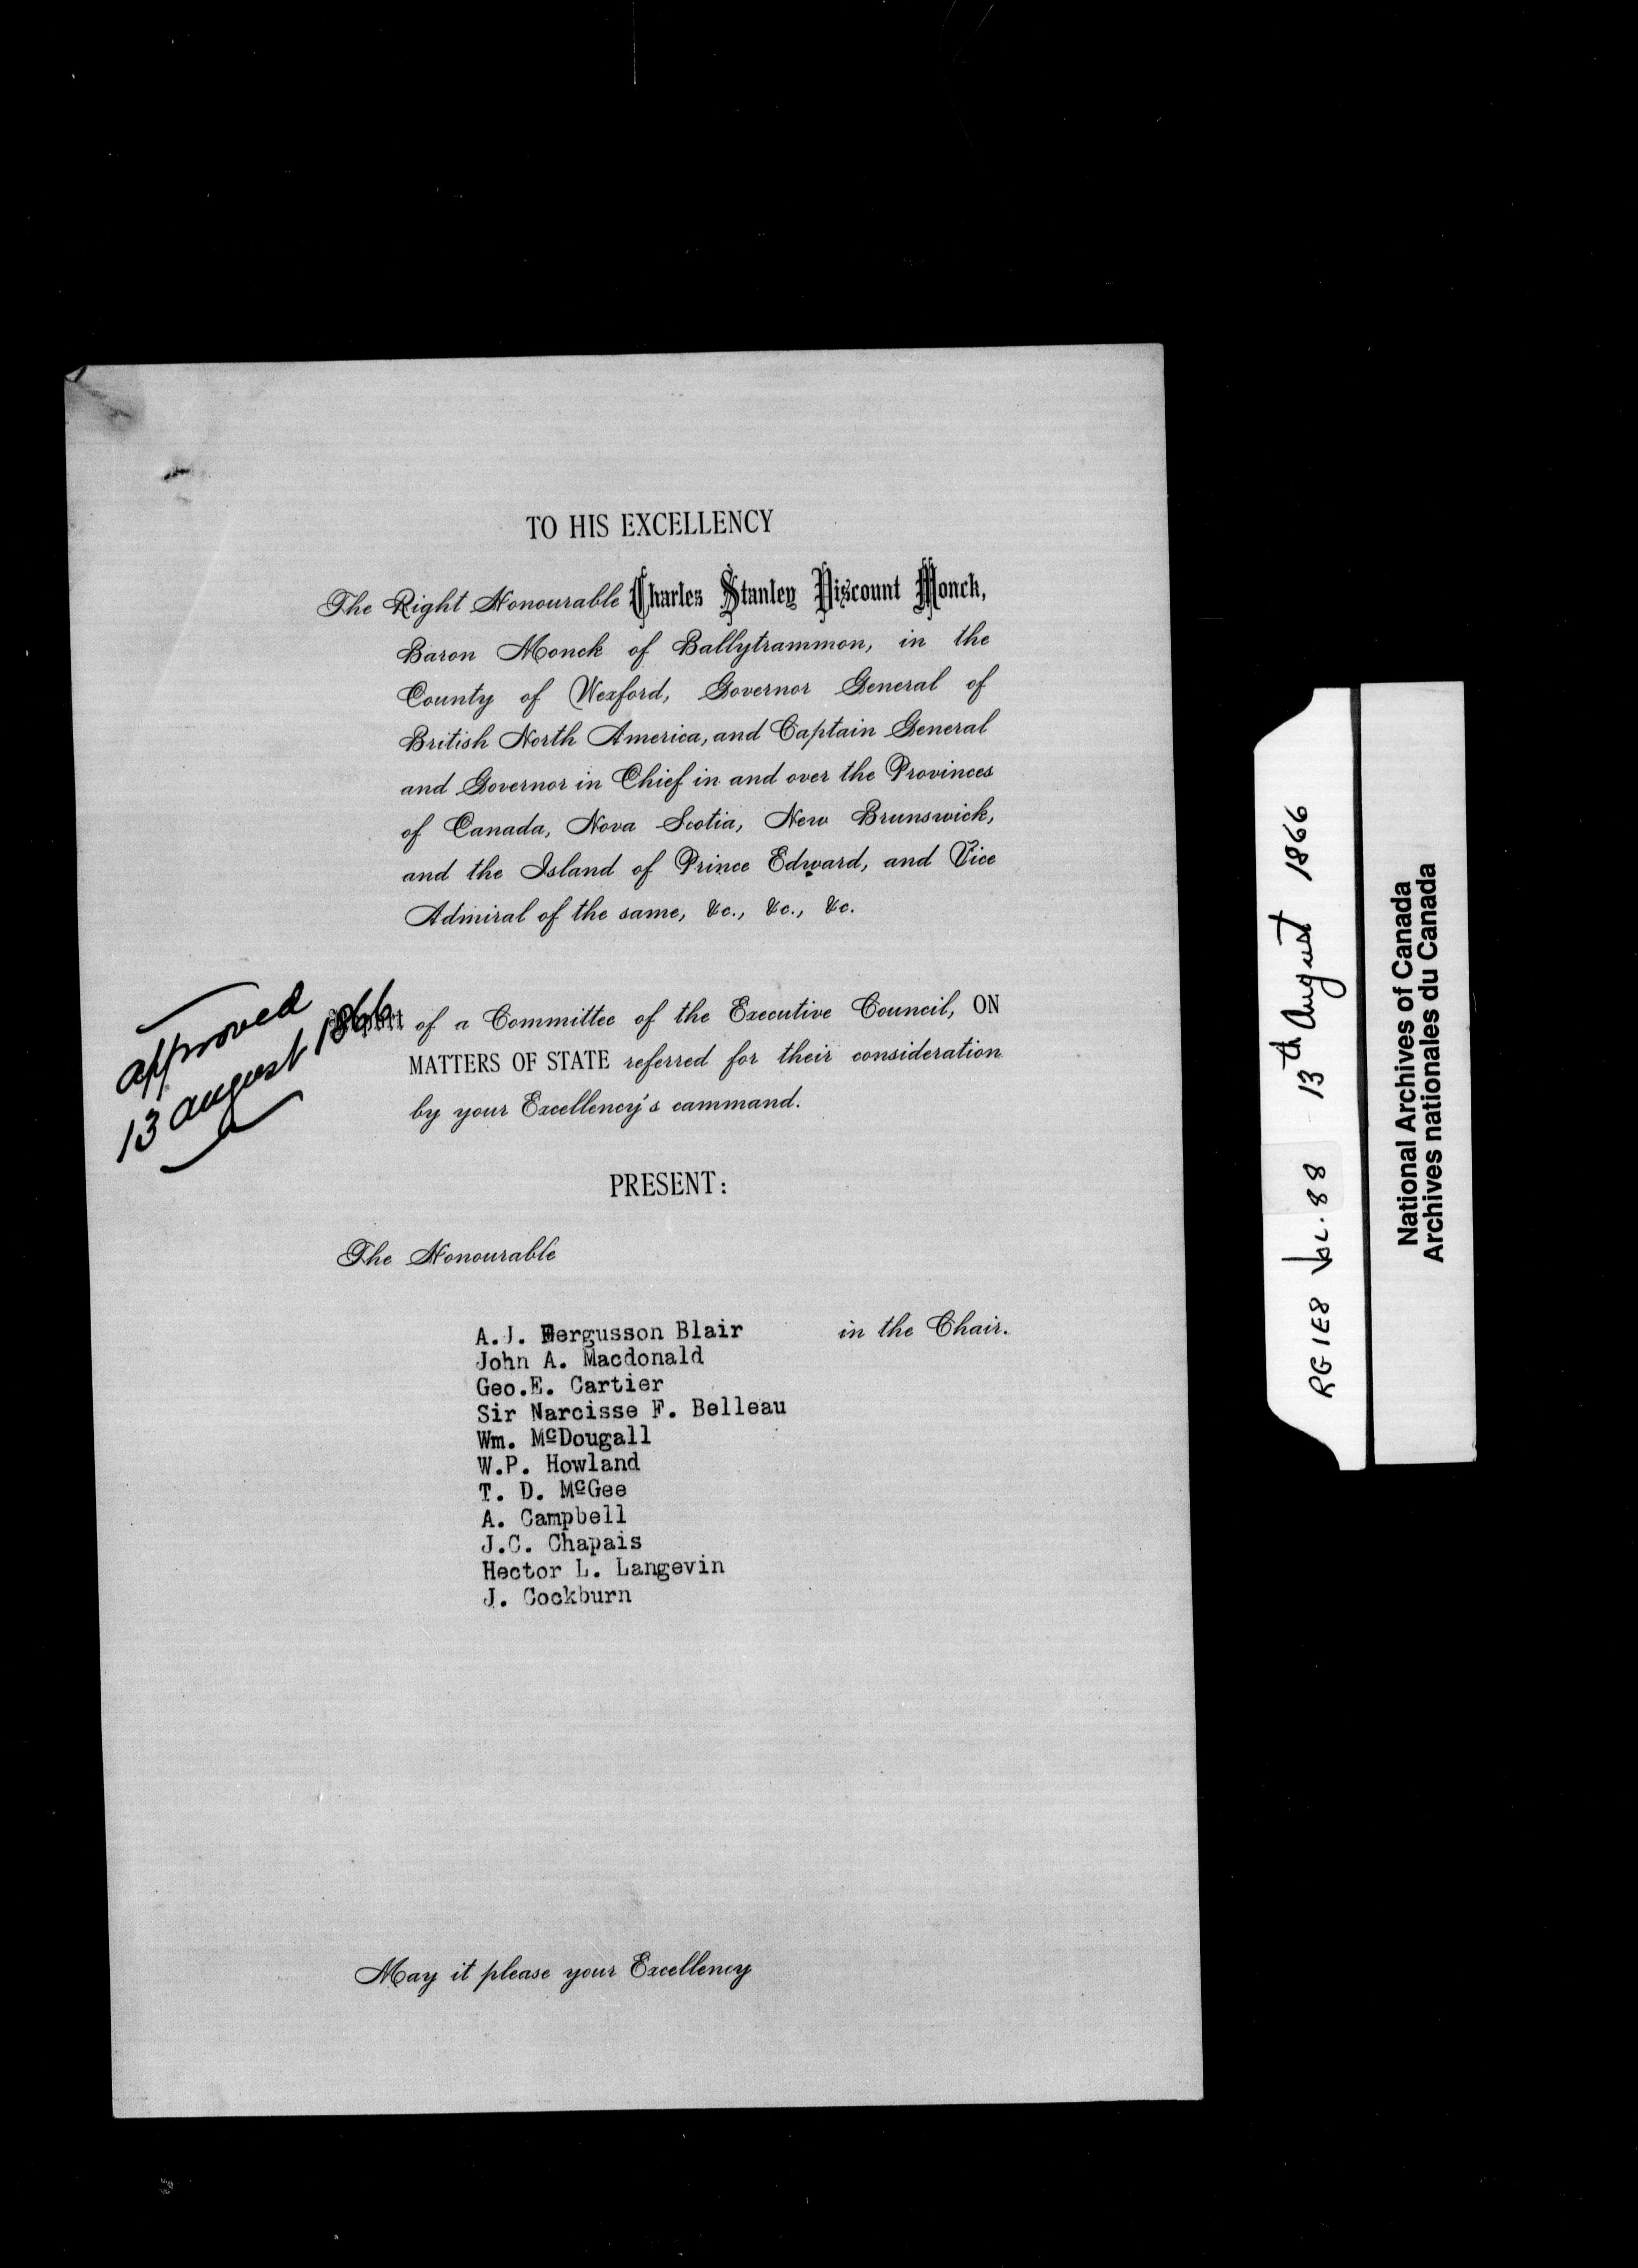 TO HIS EXCELLENCY
The Right Honourable Charles Stanley Viscount Monck,
Baron Monck of Ballytrammon, in the
County of Wexford, Governor General of
British North America, and Captain General
and Governor in Chief in and over the Provinces
of Canada, Nova Scotia, New Brunswick,
and the Island of Prince Edward, and Vice
Admiral of the same, &c., &c., &c.
approved
13 august 1866
of a Committee of the Executive Council, ON
MATTERS OF STATE referred for their consideration
by your Excellency's cammand.
PRESENT:
The Honourable
A.J. Fergusson Blair in the Chair.
John A. Macdonald
Geo.E. Cartier
Sir Narcisse F. Belleau
Wm. McDougall
W.P. Howland
T. D. McGee
A. Campbell
J.C. Chapais
Hector L. Langevin
J. Cockburn
May it please your Excellency
RG 1E8 Vol. 88 13th August 1866
National Archives of Canada
Archives nationales du Canada